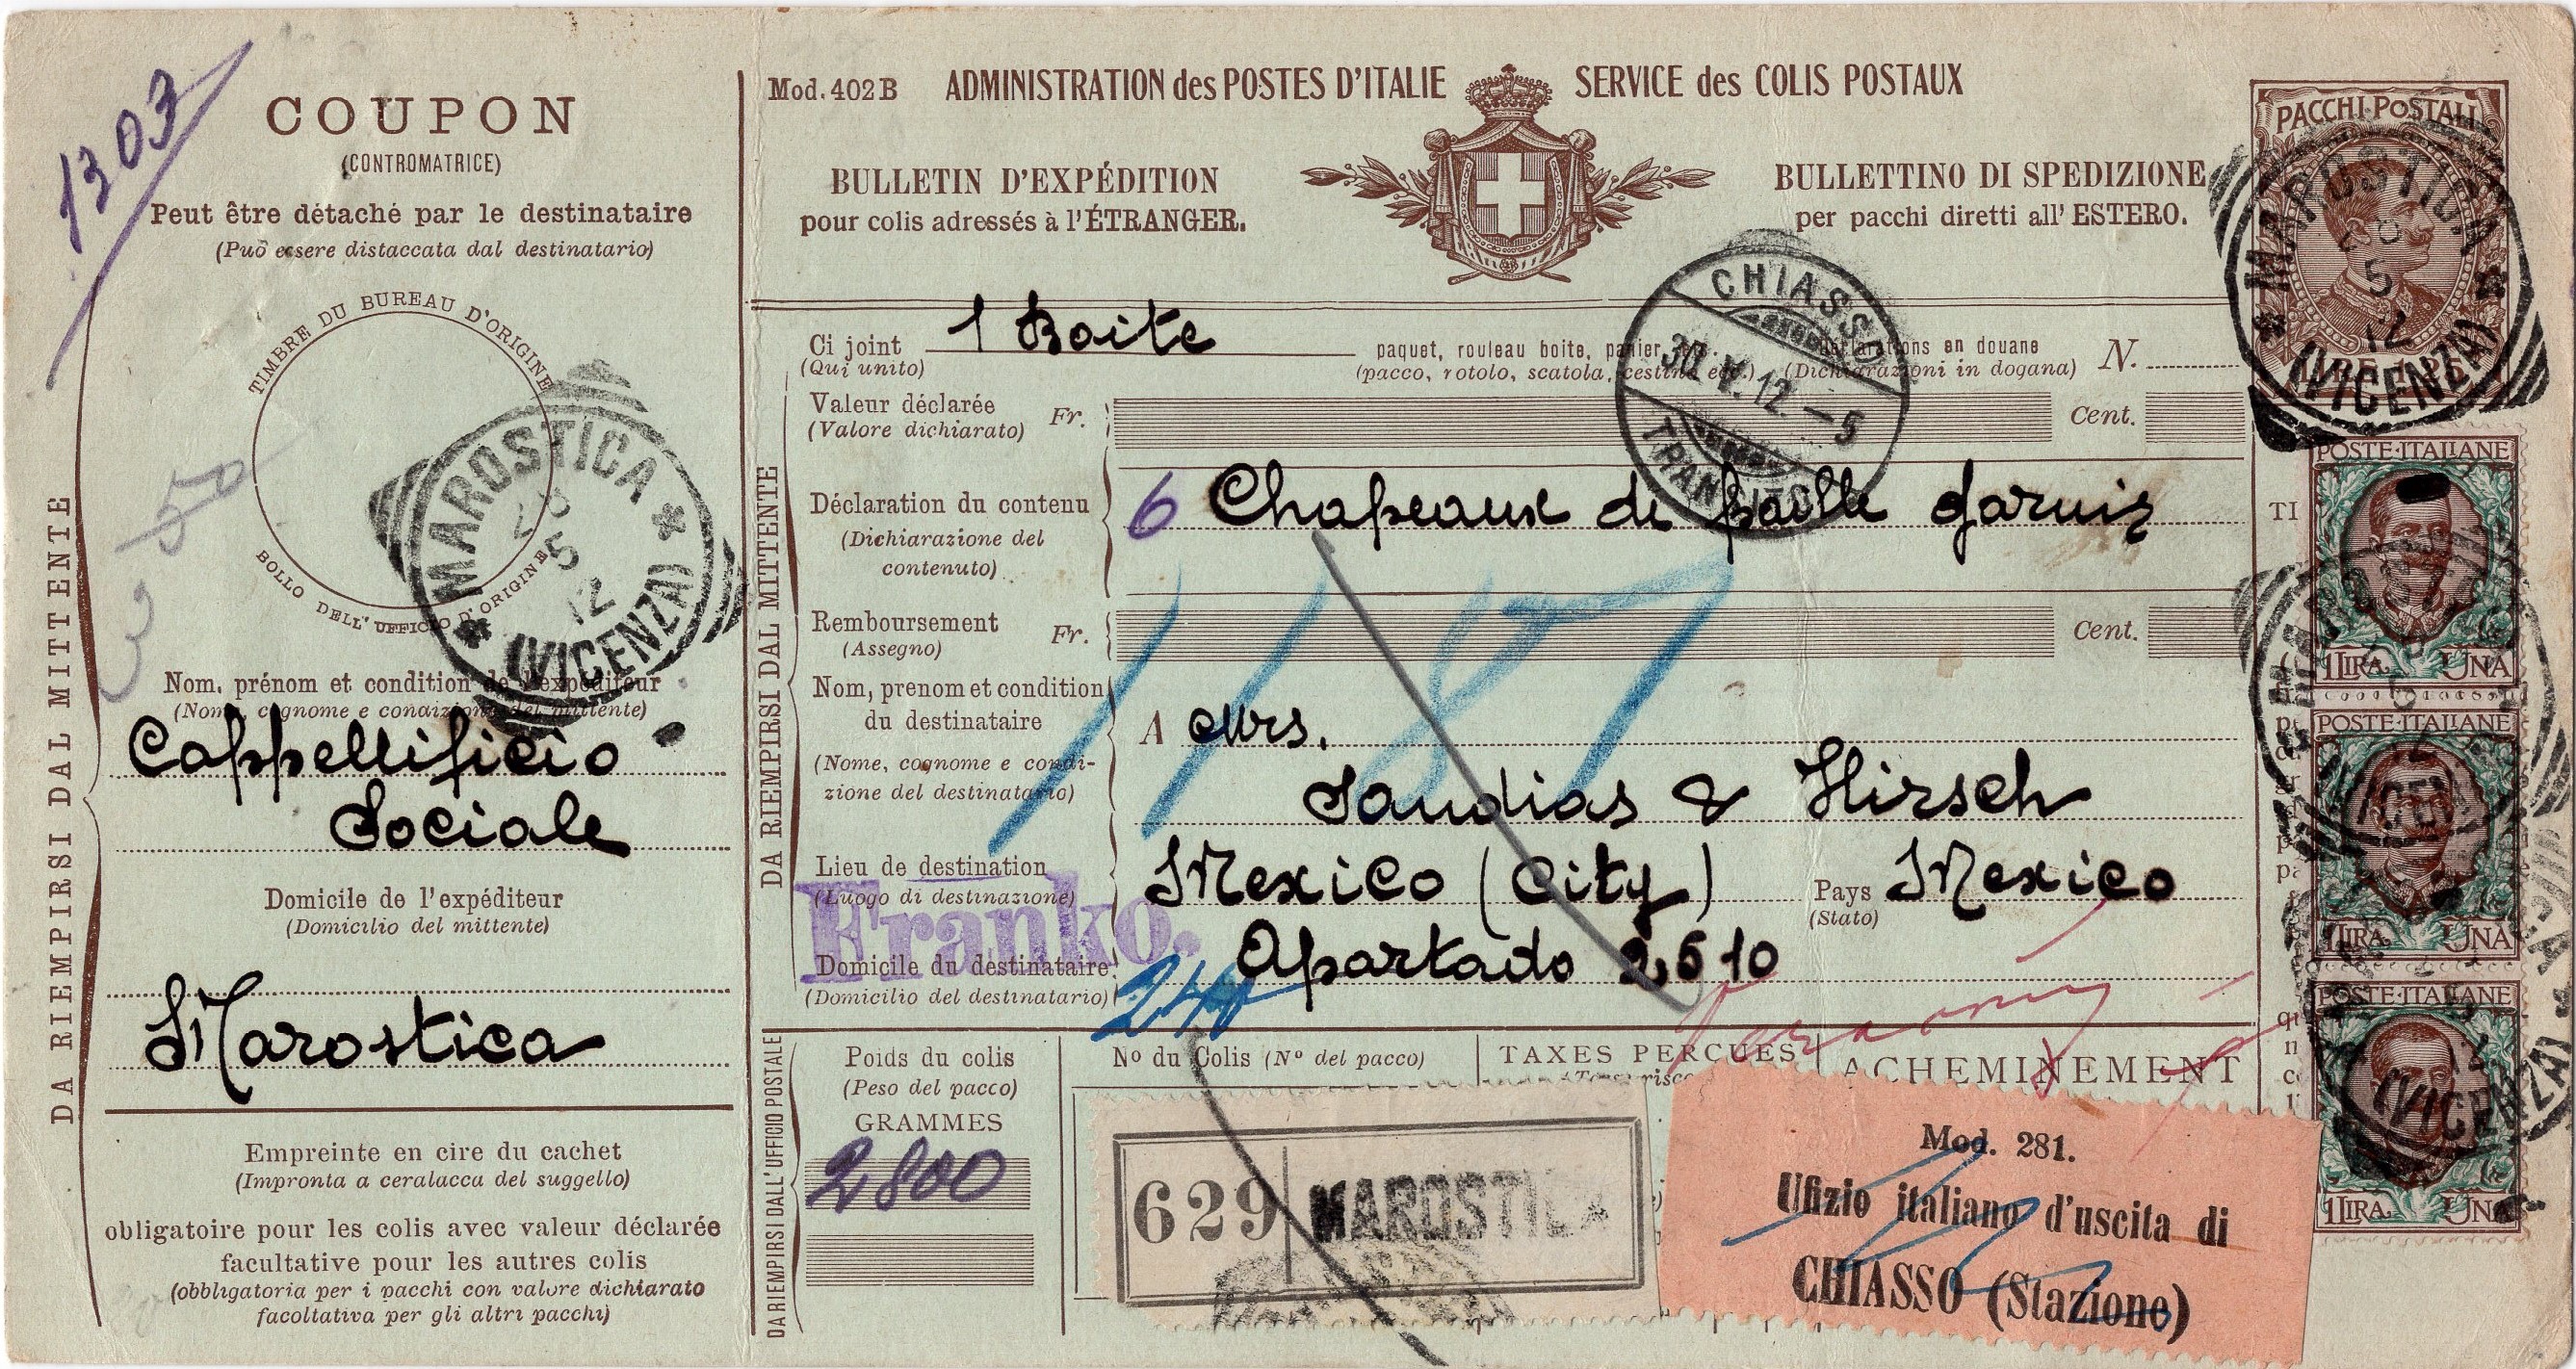 1303
COUPON
(CONTROMATRICE)
Peut être détaché par le destinataire
(Può essere distaccata dal destinatario)
TIMBRE DU BUREAU D'ORIGINE
BOLLO DELL'UFFICIO D'ORIGINE
50
MAROSTICA
5
12
(VICENZA)
DA RIEMPIRSI DAL MITTENTE
Nom, prénom et condition de l'expéditeur
(Nome, cognome e condizione del mittente)
Cappellificio
Sociale
Domicile de l'expéditeur
(Domicilio del mittente)
Marostica
Empreinte en cire du cachet
(Impronta a ceralacca del suggello)
obligatoire pour les colis avec valeur déclarée
facultative pour les autres colis
(obbligatoria per i pacchi con valore dichiarato
facoltativa per gli altri pacchi)
Mod. 402 B
ADMINISTRATION des POSTES D'ITALIE
SERVICE des COLIS POSTAUX
BULLETIN D'EXPÉDITION
pour colis adressés à l'ÉTRANGER.
BULLETTINO DI SPEDIZIONE
per pacchi diretti all' ESTERO.
CHIASSO
31.V.12.–5
TRANSITO
DA RIEMPIRSI DAL MITTENTE
Ci joint 1 Boite paquet, rouleau boite, panier, etc. Déclarations en douane N.
(Qui unito) (pacco, rotolo, scatola, cestino ecc.) (Dichiarazioni in dogana)
Valeur déclarée Fr. Cent.
(Valore dichiarato)
Déclaration du contenu 6 Chapeaux de paille garnis
(Dichiarazione del
contenuto)
Remboursement Fr. Cent.
(Assegno)
1187
Nom, prenom et condition
du destinataire
A Mrs.
(Nome, cognome e condi-
zione del destinatario)
Saudias & Hirsch
Lieu de destination Mexico (City) Pays Mexico
(Luogo di destinazione) (Stato)
Franko.
Domicile du destinataire Apartado 2510
(Domicilio del destinatario)
DA RIEMPIRSI DALL'UFFICIO POSTALE
Poids du colis
(Peso del pacco)
GRAMMES
2800
No du Colis (No del pacco)
TAXES PERCUES
ACHEMINEMENT
629 MAROSTICA
Mod. 281.
Ufizio italiano d'uscita di
CHIASSO (Stazione)
PACCHI·POSTALI
LIRE 1,25
MAROSTICA
5
12
(VICENZA)
TI
POSTE·ITALIANE
1 LIRA UNA
POSTE·ITALIANE
1 LIRA UNA
POSTE·ITALIANE
1 LIRA UNA